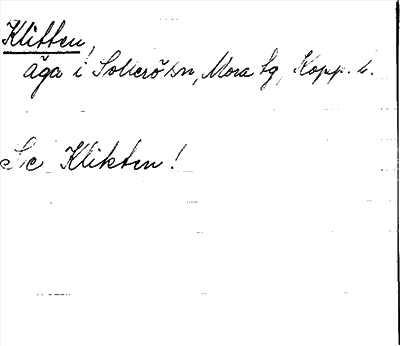 Klitten,
äga i Sollerö sn, Mora tg, Kopp. l.
Se Klikten!